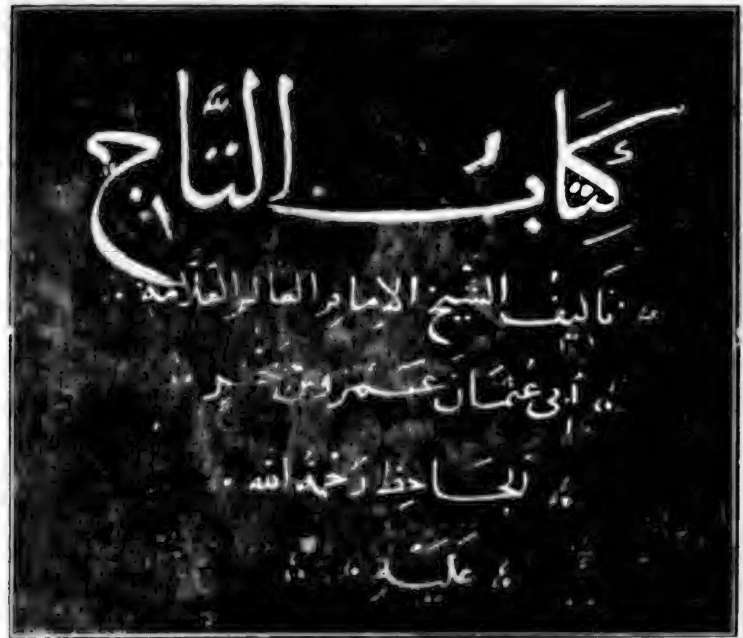 كِتَابُ التَّاجِ
تَأليفُ الشَّيخ الإمامِ العالمِ العَلَّامَة
أبى عُثمَان عَمرو بن بحر
الجَاحِظ رَحْمَةُ الله
عَلَيَهِ